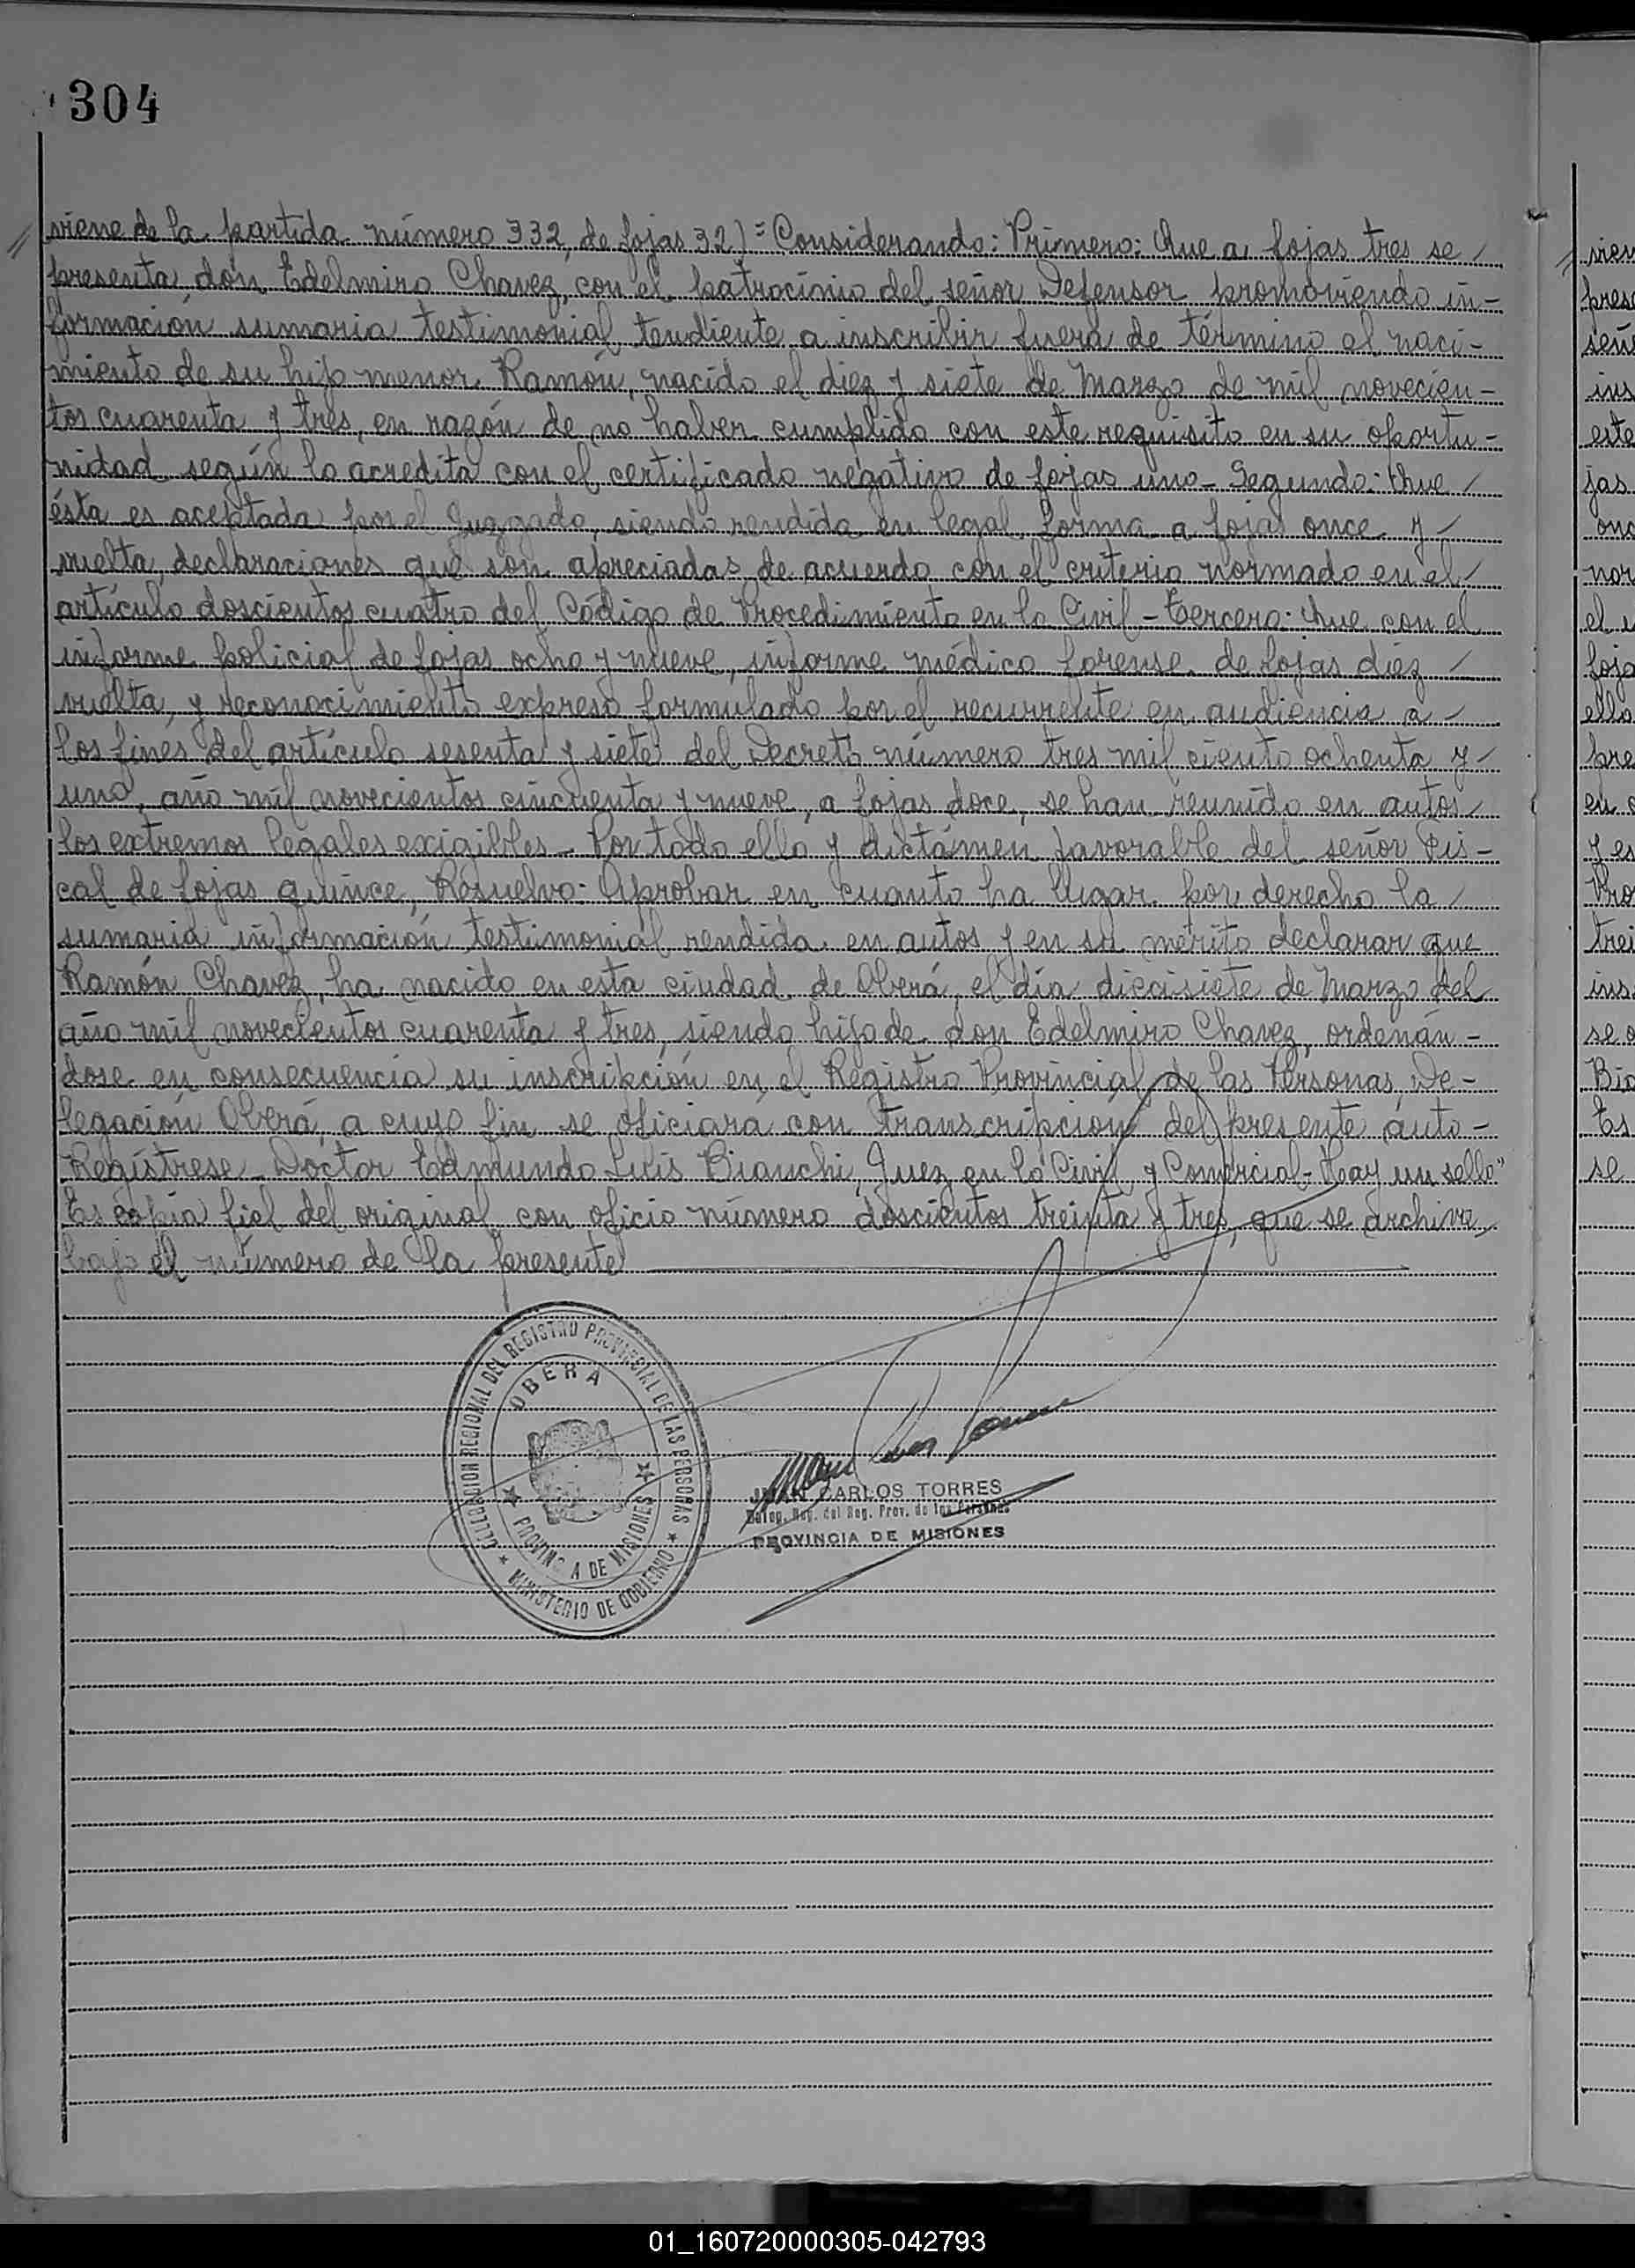 304
viene de la partida número 332, de fojas 32) = Considerando: Primero: Que a fojas tres se /
presenta don Edelmiro Chavez, con el patrocinio del señor Defensor promoviendo in-
formación sumaria testimonial tendiente a inscribir fuera de término el naci-
miento de su hijo menor Ramón, nacido el diez y siete de Marzo de mil novecien-
tos cuarenta y tres, en razón de no haber cumplido con este requisito en su oportu-
nidad según lo acredita con el certificado negativo de fojas uno - Segundo: Que /
ésta es aceptada por el Juzgado, siendo rendida en legal forma a fojas once y -
vuelta, declaraciones que son apreciadas de acuerdo con el criterio normado en el /
artículo doscientos cuatro del Código de Procedimiento en lo Civil - Tercero: Que con el
informe policial de fojas ocho y nueve, informe médico forense de fojas diez /
vuelta, y reconocimiento expreso formulado por el recurrente en audiencia a -
los fines del artículo sesenta y siete del Decreto número tres mil ciento ochenta y -
uno, año mil novecientos cincuenta y nueve, a fojas doce, se han reunido en autos /
los extremos legales exigibles - Por todo ello y dictámen favorable del señor Fis-
cal de fojas quince, Resuelvo: Aprobar en cuanto ha lugar por derecho la /
sumaria información testimonial rendida en autos y en su mérito declarar que
Ramón Chavez, ha nacido en esta ciudad de Oberá, el día diecisiete de Marzo del
año mil novecientos cuarenta y tres, siendo hijo de don Edelmiro Chavez, ordenán-
dose en consecuencia su inscripción en el Registro Provincial de las Personas, De-
legación Oberá, a cuyo fin se oficiará con transcripción del presente auto -
Regístrese - Doctor Edmundo Luis Bianchi, Juez en lo Civil y Comercial - Hay un sello"
Es copia fiel del original con oficio número doscientos treinta y tres, que se archiva,
bajo el número de la presente
DELEGACION REGIONAL DEL REGISTRO PROVINCIAL DE LAS PERSONAS
OBERA
PROVINCIA DE MISIONES
MINISTERIO DE GOBIERNO
JUAN CARLOS TORRES
Deleg. Reg. del Reg. Prov. de las Personas
PROVINCIA DE MISIONES
vien
prese
seño
ins
este
jas
onc
nor
el
foja
ello
pre
en
y es
Pro
trei
ins
se o
Bia
Es
se
01_160720000305-042793